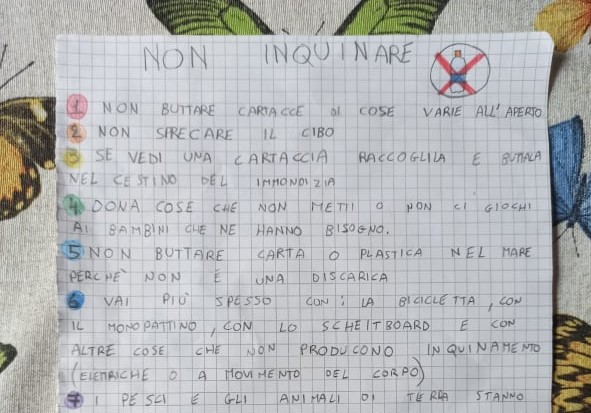 NON INQUINARE
1 NON BUTTARE CARTACCE DI COSE VARIE ALL'APERTO
2 NON SPRECARE IL CIBO
3 SE VEDI UNA CARTACCIA RACCOGLILA E BUTTALA
NEL CESTINO DEL IMMONDIZIA
4 DONA COSE CHE NON METTI O NON CI GIOCHI
AI BAMBINI CHE NE HANNO BISOGNO.
5 NON BUTTARE CARTA O PLASTICA NEL MARE
PERCHE' NON È UNA DISCARICA
6 VAI PIÙ SPESSO CON: LA BICICLETTA, CON
IL MONOPATTINO, CON LO SCHEITBOARD E CON
ALTRE COSE CHE NON PRODUCONO INQUINAMENTO
(ELETTRICHE O A MOVIMENTO DEL CORPO)
7 I PESCI E GLI ANIMALI DI TERRA STANNO